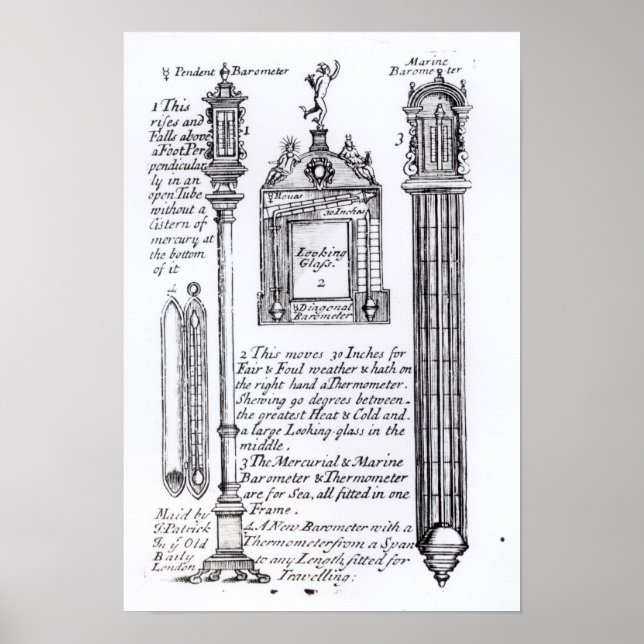 ☿ Pendent Barometer
Marine
Barometer
1 This
rises and
Falls above
a Foot Per
pendicular
ly in an
open Tube
without a
Cistern of
mercury at
the bottom
of it
1
3
30 Inches
Looking
Glass.
2
☿ Diagonal
Barometer
4
2 This moves 30 Inches for
Fair & Foul weather & hath on
the right hand a Thermometer.
Shewing 90 degrees between
the greatest Heat & Cold and
a large Looking-glass in the
middle.
3 The Mercurial & Marine
Barometer & Thermometer
are for Sea, all fitted in one
Frame.
4. A New Barometer with a
Thermometer from a Span
to any Length, fitted for
Travelling:
Maid by
J. Patrick
In ye Old
Baily
London